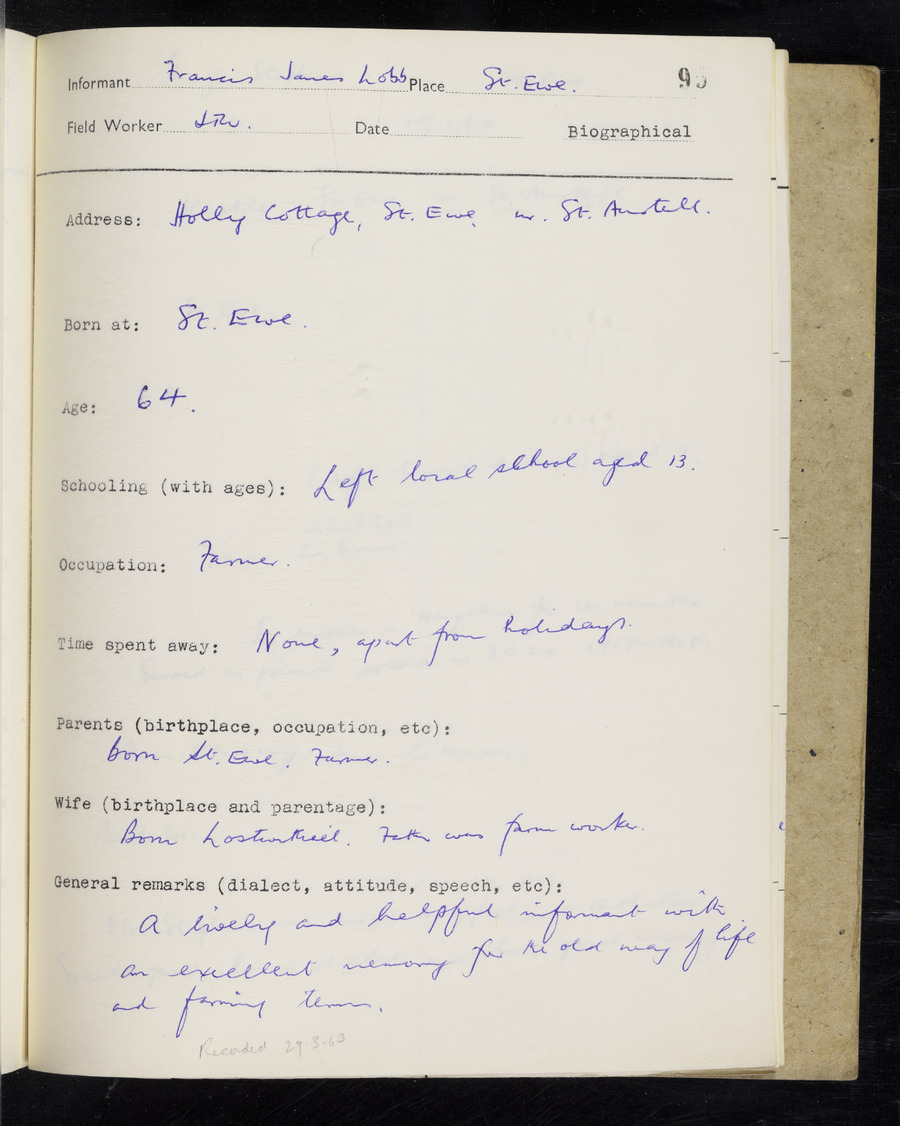 Informant Francis James Lobb Place St. Ewe. 95
Field Worker Date Biographical
Address: Holly Cottage, St. Ewe, nr. St. Austell.
Born at: St. Ewe.
Age: 64.
Schooling (with ages): Left local school aged 13.
Occupation: Farmer.
Time spent away: None, apart from holidays.
Parents (birthplace, occupation, etc):
born St. Ewe. Farmer.
Wife (birthplace and parentage):
Born Lostwithiel. Father was farm worker.
General remarks (dialect, attitude, speech, etc):
A lively and helpful informant with
an excellent memory for the old way of life
and farming terms.
Recorded 29-3-63